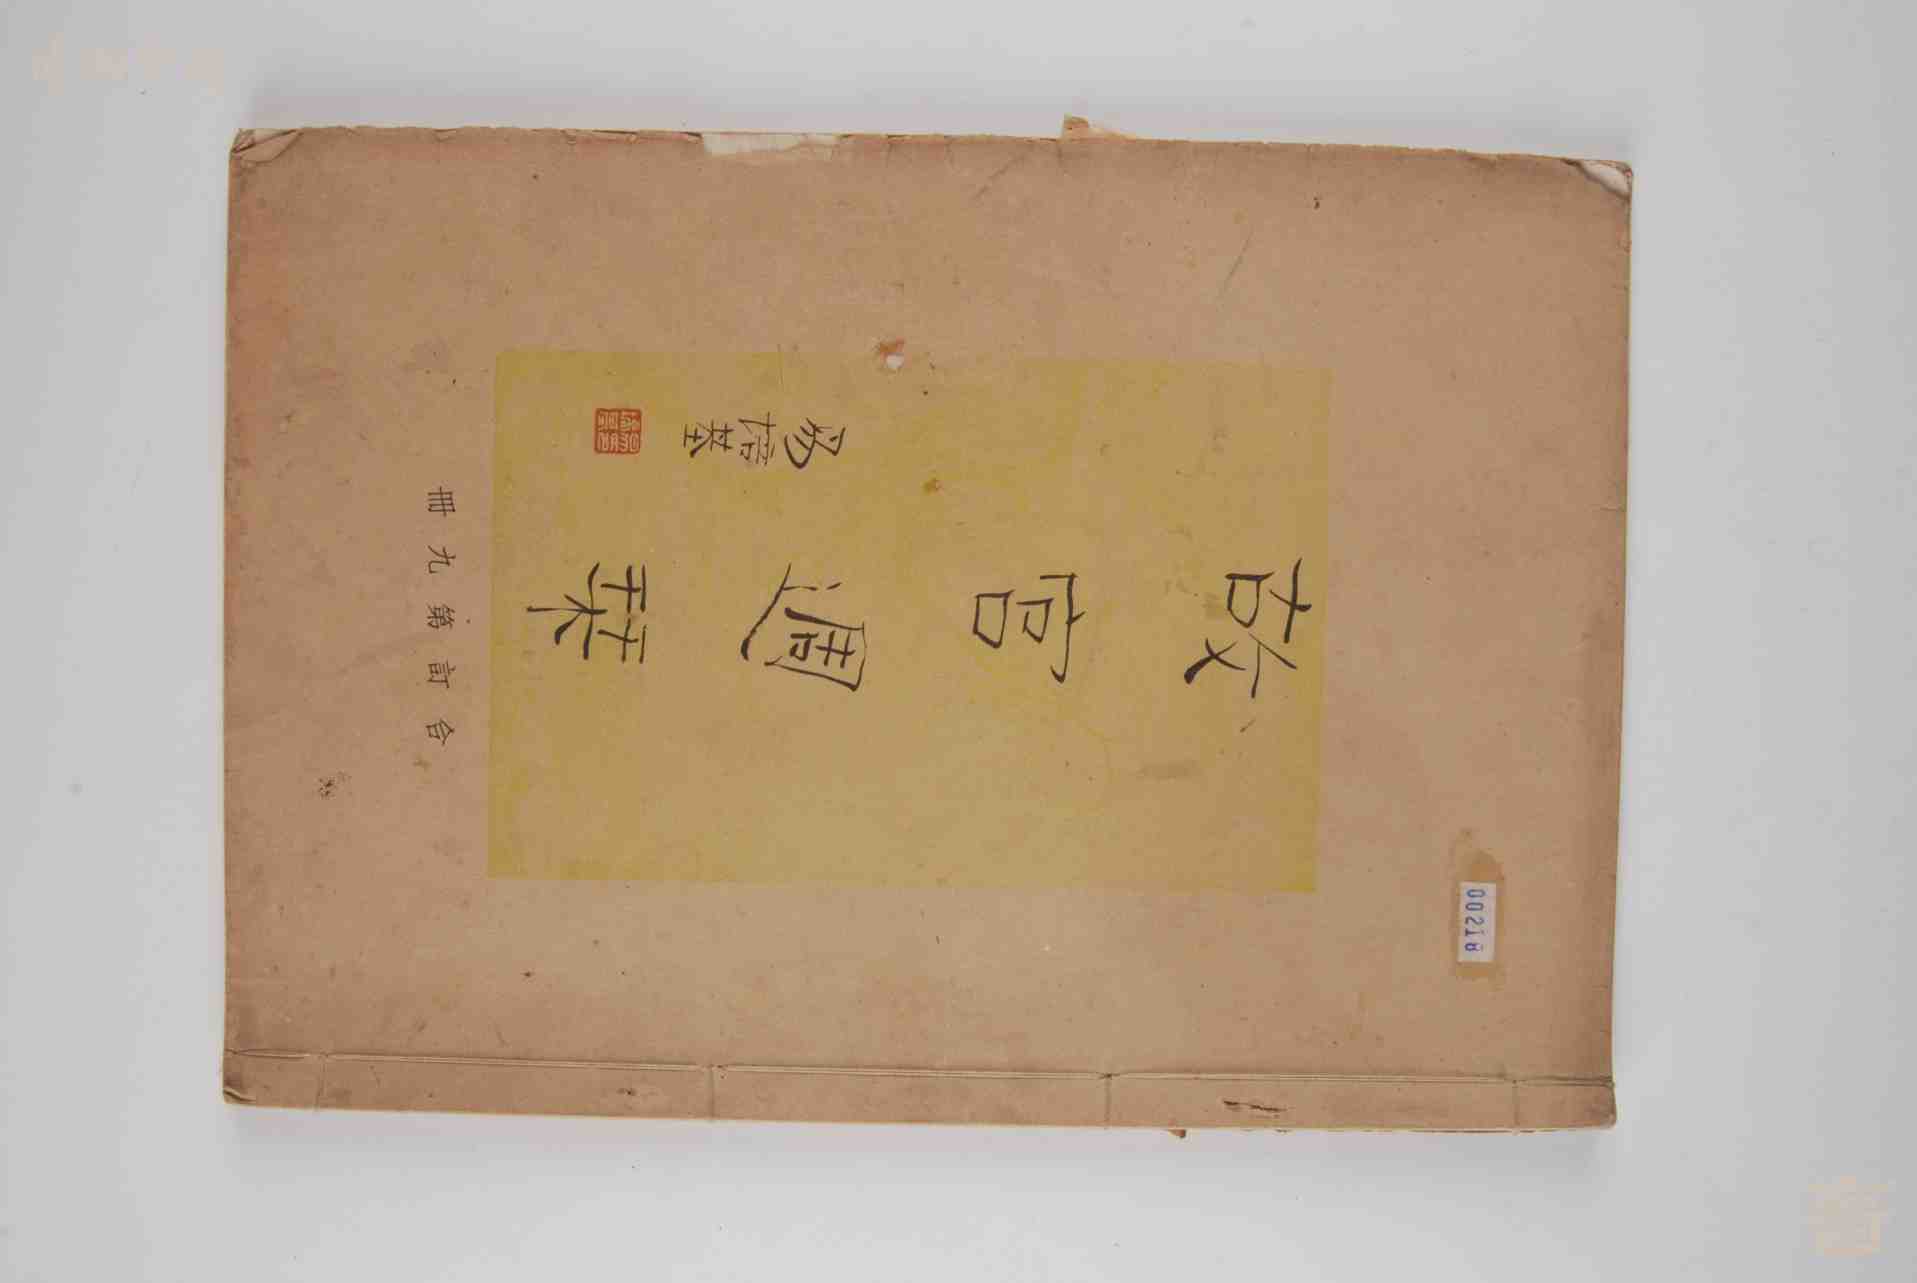 故宮週栞
易培基
合訂第九冊
00218